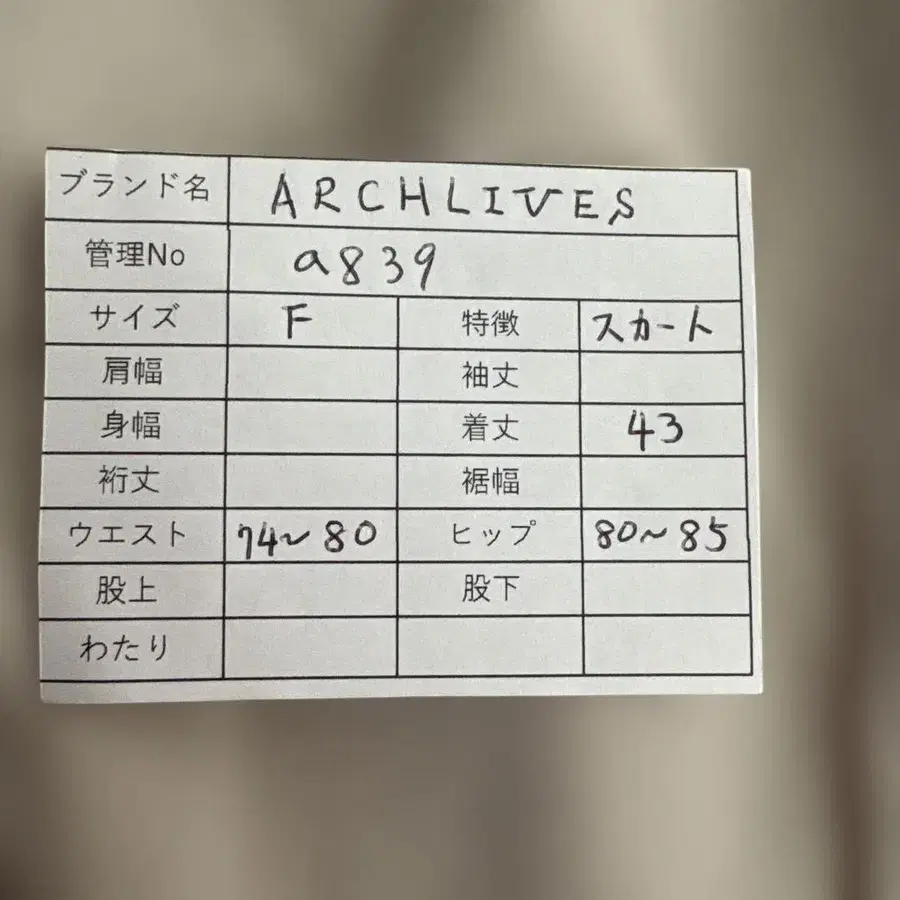 ブランド名 ARCHLIVES
管理No a839
サイズ F 特徴 スカート
肩幅 袖丈
身幅 着丈 43
裄丈 裾幅
ウエスト 74~80 ヒップ 80~85
股上 股下
わたり